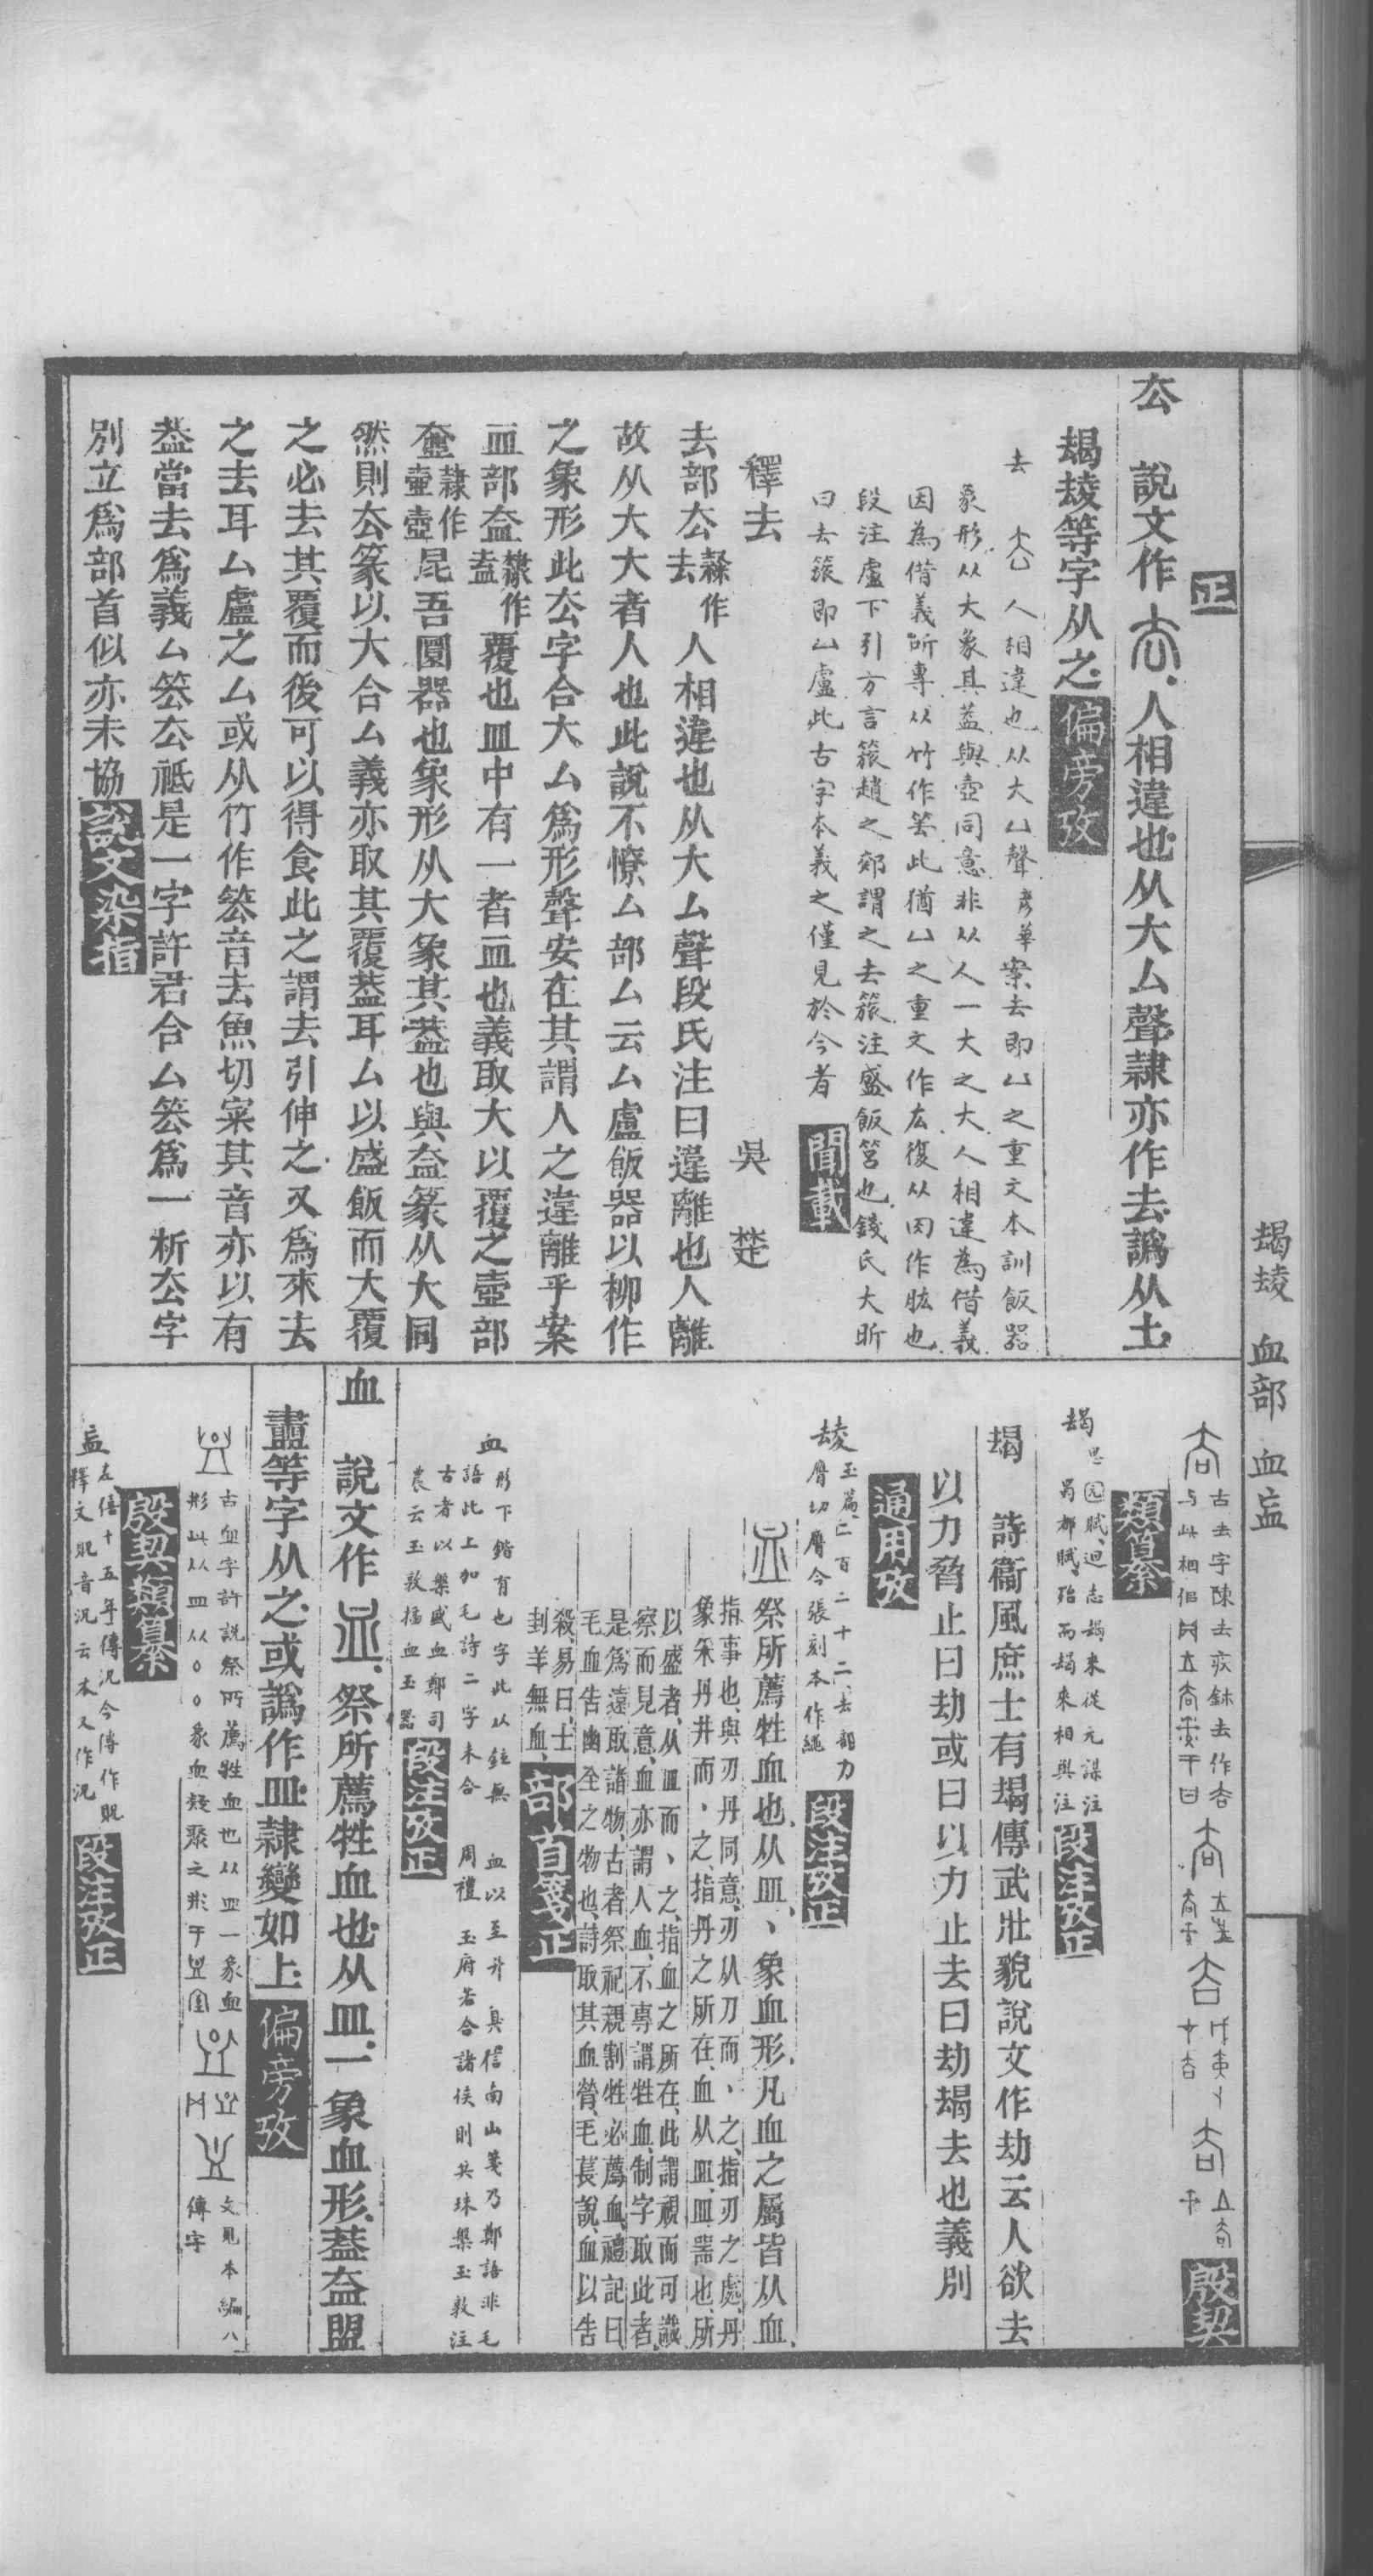 正
厺　說文作　人相違也从大厶聲隸亦作去譌从土
朅㚇等字从之偏旁攷
去　人相違也从大凵聲彥華案去即凵之重文本訓飯器
象形从大象其蓋與壺同意非从人一大之大人相違為借義
因為借義所專从竹作筶此猶凵之重文作厷復从肉作肱也
段注盧下引方言簇趙之郊謂之去簇注盛飯筥也錢氏大昕
曰去簇即凵盧此古字本義之僅見於今者　閒載
釋去　吳楚
去部厺隸作去人相違也从大厶聲段氏注曰違離也人離
故从大大者人也此說不憭厶部厶云厶盧飯器以柳作
之象形此厺字合大厶爲形聲安在其謂人之違離乎案
血部盇隸作盍覆也皿中有一者血也義取大以覆之壺部
壺隸作壺昆吾圜器也象形从大象其蓋也與盇篆从大同
然則厺篆以大合厶義亦取其覆蓋耳厶以盛飯而大覆
之必去其覆而後可以得食此之謂去引伸之又爲來去
之去耳厶盧之厶或从竹作筶音去魚切宷其音亦以有
葢當去爲義厶筶厺祗是一字許君合厶筶爲一析厺字
別立爲部首似亦未協說文染指
朅㚇　血部　血衁
古去字陳去疾鉥去作
与此相佀
殷契
類纂
朅思玄賦迴志朅來從元諆注
蜀都賦殆而朅來相與注段注攷正
朅　詩衞風庶士有朅傳武壯貌說文作劫云人欲去
以力脅止曰劫或曰以力止去曰劫朅去也義別
通用攷
㚇玉篇二百二十二去部力
膺切膺今張刻本作繩　段注攷正
祭所薦牲血也从皿丶象血形凡血之屬皆从血
指事也與刃丹同意刃从刀而丶之指刃之處丹
象采丹井而丶之指丹之所在血从皿皿器也所
以盛者从皿而丶之指血之所在此謂視而可識
察而見意血亦謂人血不專謂牲血制字取此者
是爲遠取諸物古者祭祀親割牲必薦血禮記曰
毛血告幽全之物也詩取其血膋毛萇說血以告
殺易曰士
刲羊無血　部首箋正
血　形下鍇有也字此从鉉無　血以至升臭信南山箋乃鄭語非毛
語此上加毛詩二字未合　周禮玉府若合諸侯則共珠槃玉敦注
古者以槃盛血鄭司
農云玉敦歃血玉器　段注攷正
血　說文作　祭所薦牲血也从皿一象血形葢盇盟
衋等字从之或譌作皿隸變如上偏旁攷
古血字許說祭所薦牲血也从皿一象血
形此从皿从○○象血凝聚之形　文見本編八
傳字
殷契類纂
衁左僖十五年傳況今傳作貺
釋文貺音況云本又作況　段注攷正